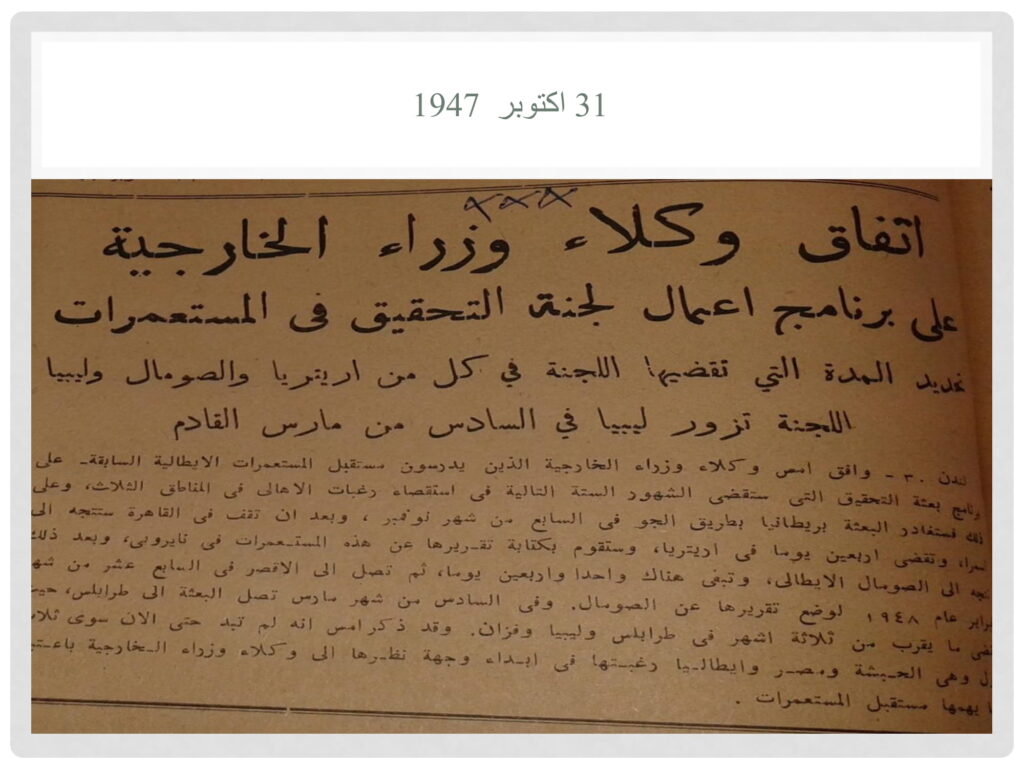 31 اكتوبر 1947
اتفاق وكلاء وزراء الخارجية
على برنامج اعمال لجنة التحقيق فى المستعمرات
تحديد المدة التي تقضيها اللجنة في كل من اريتريا والصومال وليبيا
اللجنة تزور ليبيا في السادس من مارس القادم
لندن ٣٠ - وافق امس وكلاء وزراء الخارجية الذين يدرسون مستقبل المستعمرات الايطالية السابقة على
برنامج بعثة التحقيق التى ستقضى الشهور الستة التالية فى استقصاء رغبات الاهالى فى المناطق الثلاث، وعلى
ذلك فستغادر البعثة بريطانيا بطريق الجو فى السابع من شهر نوفمبر ، وبعد ان تقف فى القاهرة ستتجه الى
وتقضى اربعين يوما فى اريتريا، وستقوم بكتابة تقريرها عن هذه المستعمرات فى نايروبى، وبعد ذلك
الى الصومال الايطالى، وتبقى هناك واحدا واربعين يوما، ثم تصل الى الاقصر فى السابع عشر من شهر
عام ١٩٤٨ لوضع تقريرها عن الصومال. وفى السادس من شهر مارس تصل البعثة الى طرابلس، حيث
ما يقرب من ثلاثة اشهر فى طرابلس وليبيا وفزان. وقد ذكر امس انه لم تبد حتى الان سوى ثلاث
وهى الحبشة ومصر وايطاليا رغبتها فى ابداء وجهة نظرها الى وكلاء وزراء الخارجية
يهمها مستقبل المستعمرات .